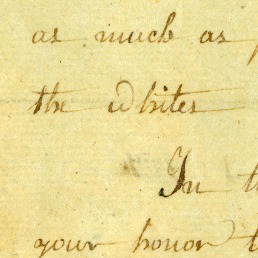 as much as
the whites
In
your honor